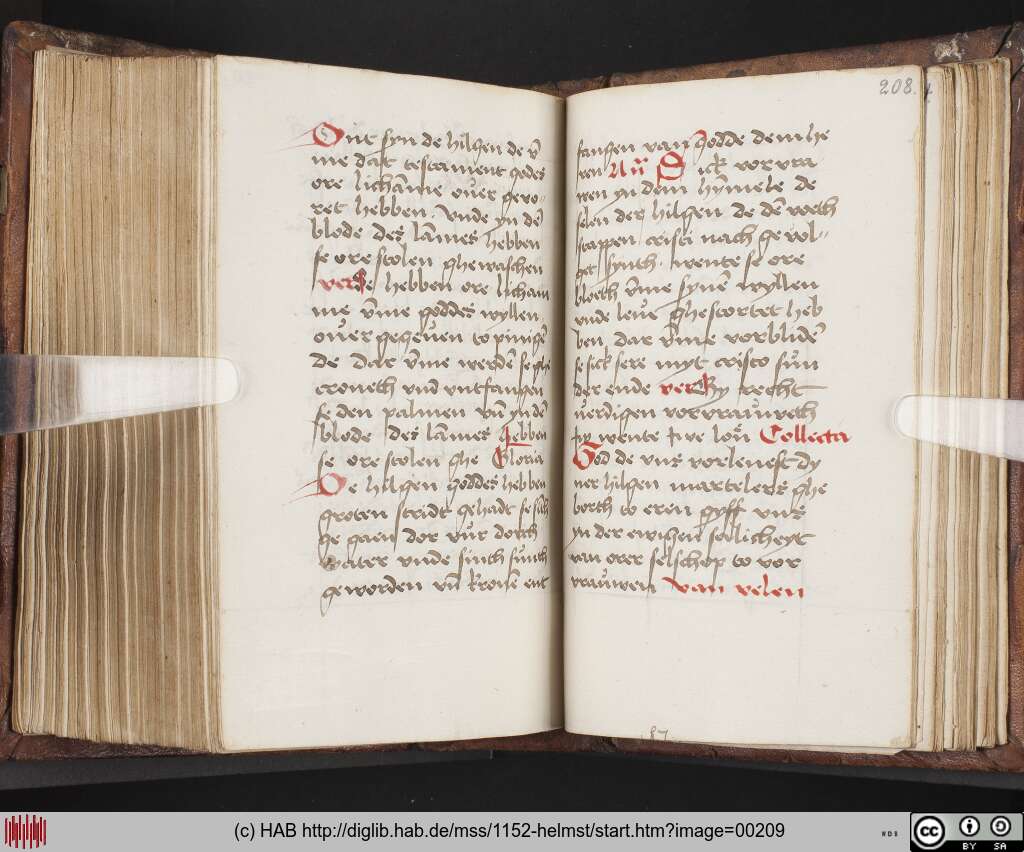 Dyt syn de hilgen de v̄
me dat testament godes
ore lichāme ouer gewo-
ret hebben. Vnde yn dē
blode des lāmes hebben
se ore stolen ghewaschen
vers Se hebben ore licham
me v̄me goddes wyllen
ouer gegeuen to pinigē
de dar v̄me werdē se ghe
croneth vnd vntfangen
se den palmen vn̄ yn dē
blode des lāmes hebben
se ore stolen ghe Gloria
De hilgen goddes hebben
groten stridt gehadt se sīn
ghe gaen dor vür dorch
water vnde sinth sunth
geworden vn̄ kronē ent
208.
fangen van godde dem he
ren Ań Sick vorvra
wen yn dem hymmele de
selen der hilgen de dē voeth
stappen cristi nach gevol-
get synth. wente se ore
bloth v̄me synē wyllen
vnde leue ghestortet heb
ben, dar v̄me vorblidē
se sick sere myt cristo sun
der ende vers Gy recht
uerdigen vorvrauweth
iw wente iwe lon Collecta
God de vns vorlenest dy
ner hilgen martelers ghe
borth to eren gyff vns
yn der ewighen salicheyt
van orer selschop to vor
vrauwen Van velen
(c) HAB http://diglib.hab.de/mss/1152-helmst/start.htm?image=00209
WDB
cc BY SA